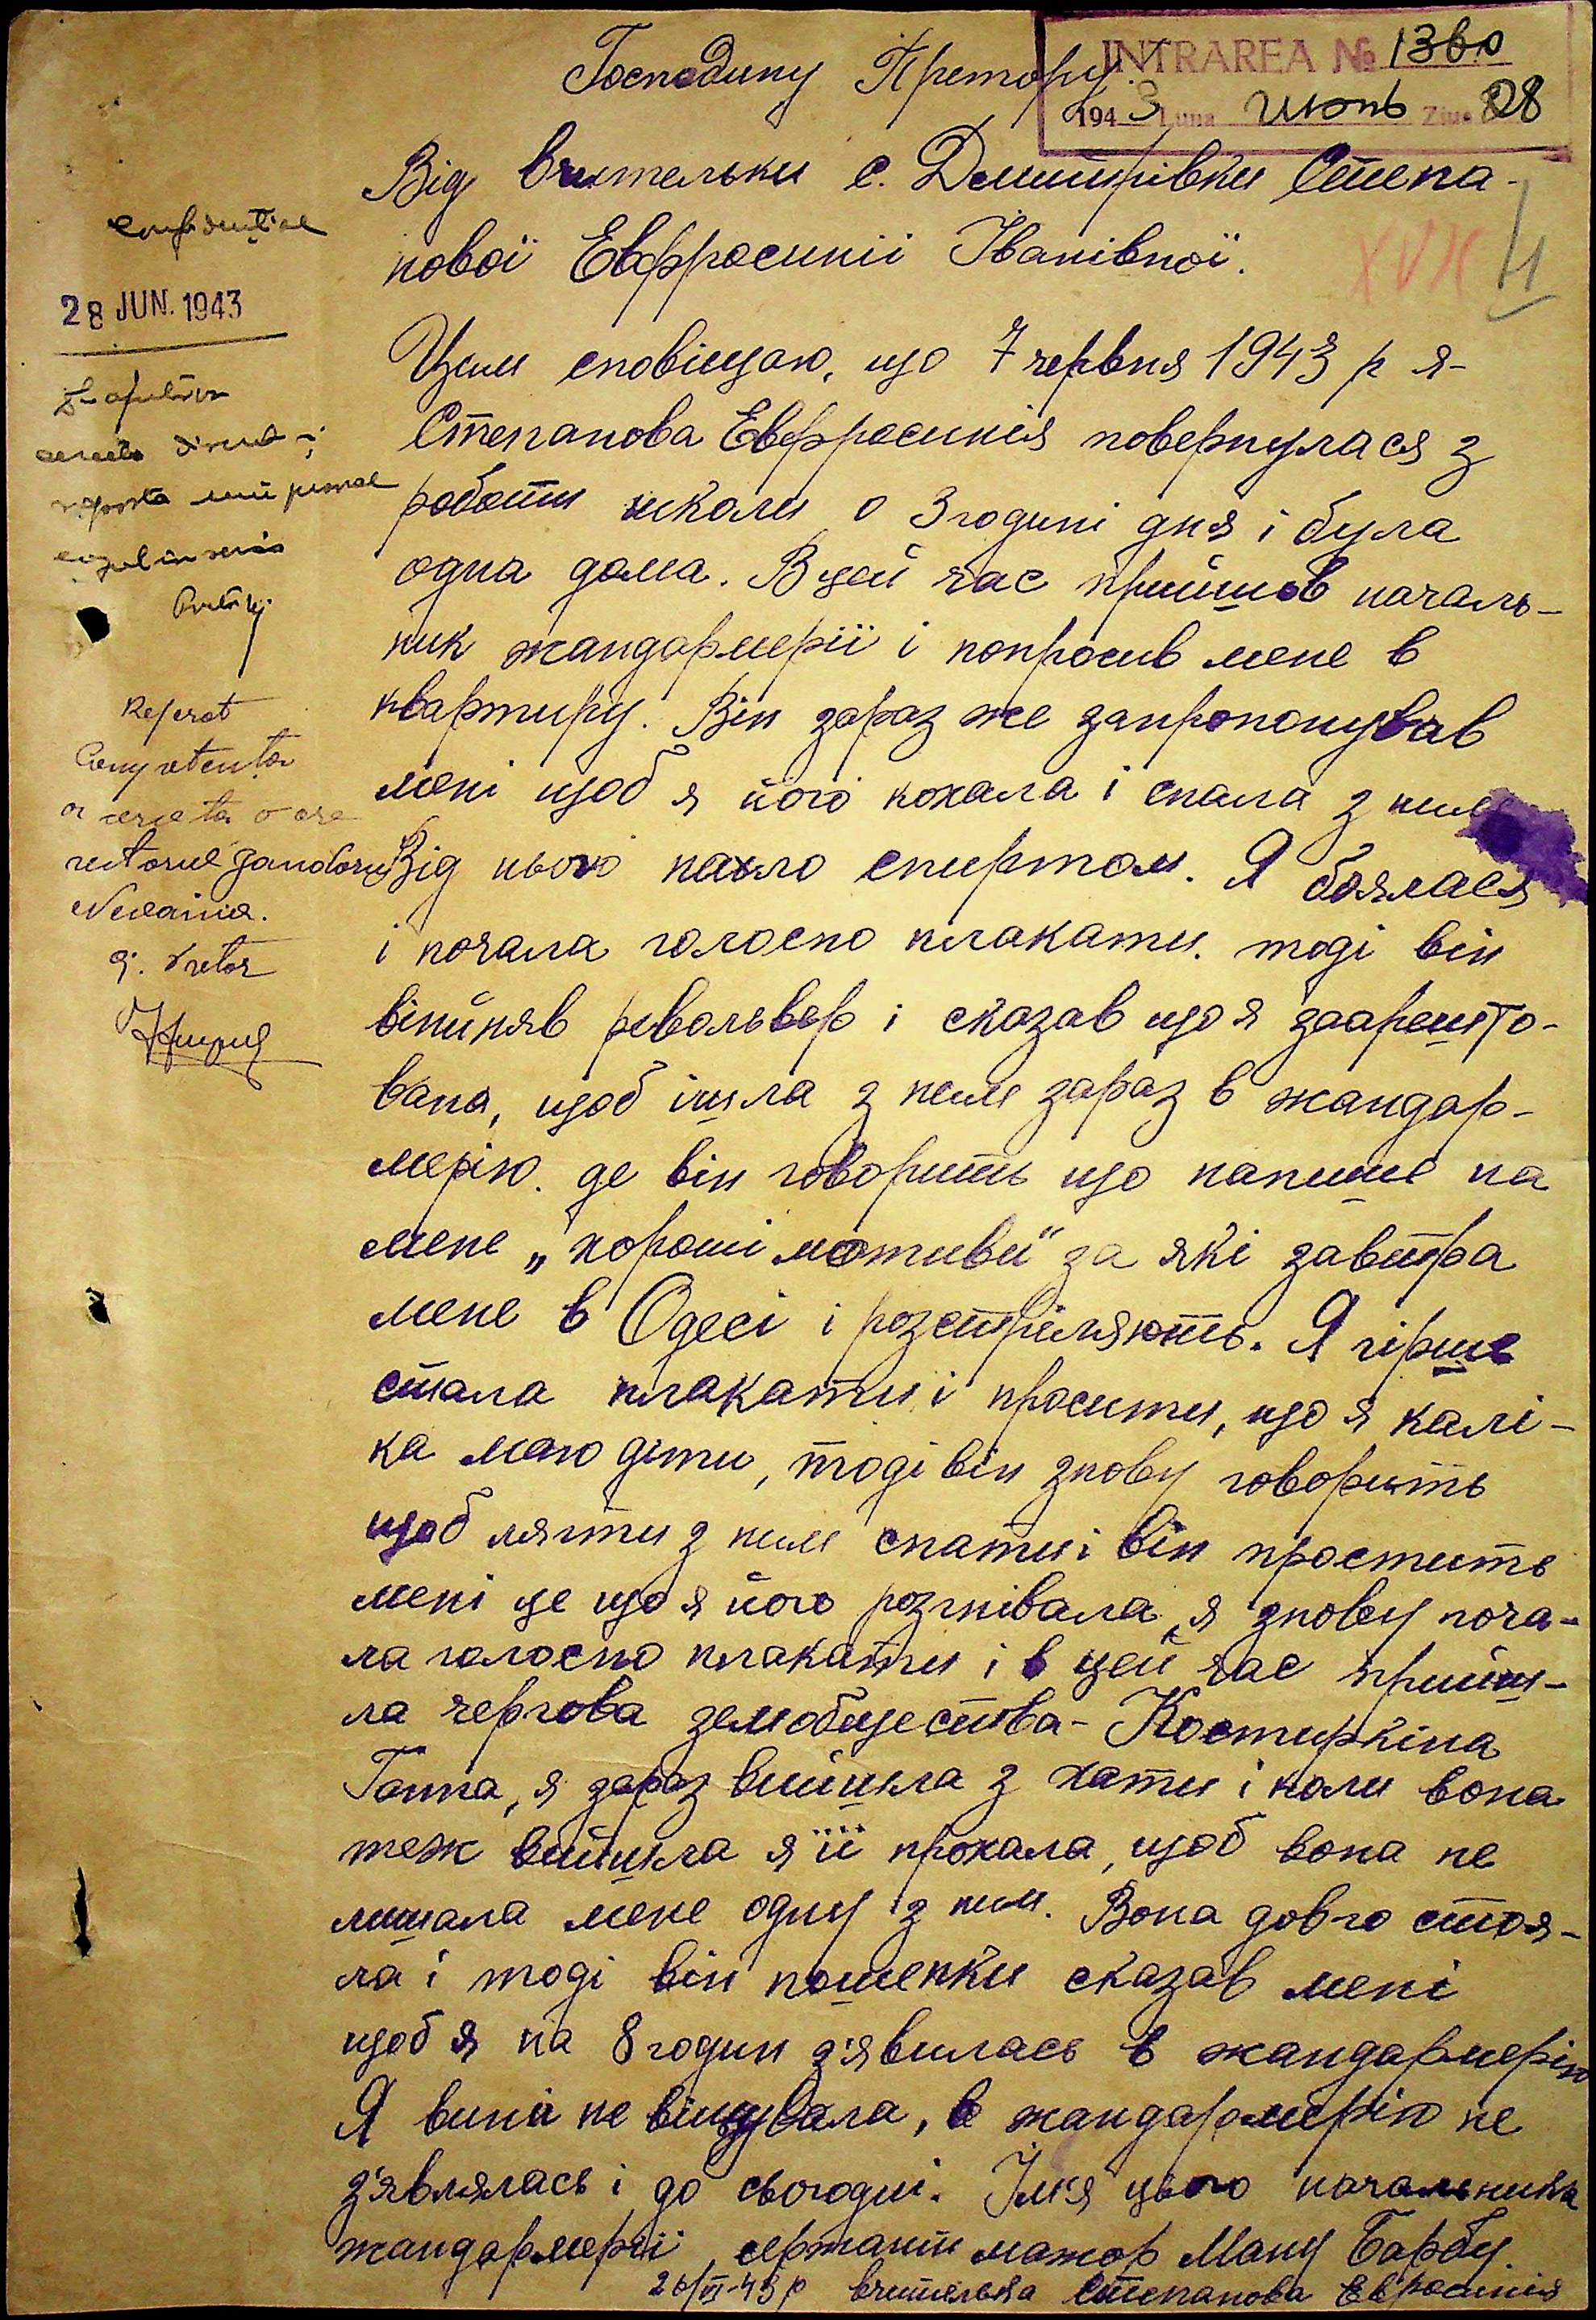 Господину Претору.
INTRAREA № 1360
1943 Luna Июнь Ziua 28
Від вчительки с. Дмитрівки Степа-
нової Евфросинії Іванівної.
confidențial
28 JUN. 1943
Цим сповіщаю, що 7 червня 1943 р я-
Степанова Евфросинія повернулася з
роботи школи о 3 годині дня і була
одна дома. В цей час прийшов началь-
ник жандармерії і попросив мене в
квартиру. Він зараз же запропонував
мені щоб я його кохала і спала з ним
Від нього пахло спиртом. Я боялася
і почала голосно плакати. тоді він
вийняв револьвер і сказав що я заарешто-
вана, щоб ішла з ним зараз в жандар-
мерію. де він говорить що напише на
мене „хороші мотиви" за які завтра
мене в Одесі і розстріляють. Я гірше
стала плакати і просити, що я калі-
ка маю діти, тоді він знову говорить
щоб лягти з ним спати і він простить
мені це що я його розгнівала, я знову поча-
ла голосно плакати і в цей час прийш-
ла чергова земобщества - Костиркіна
Ганна, я зараз вийшла з хати і коли вона
теж вийшла я її прохала, щоб вона не
лишала мене одну з ним. Вона довго стоя-
ла і тоді він пошепки сказав мені
щоб я на 8 годин з'явилась в жандармерію
Я вини не відчувала, в жандармерію не
з'являлась і до сьогодні. Ім'я цього начальника
жандармерії, сержант мажор Ману Барбу.
26/VI-43 р вчителька Степанова Евфросинія
Referat
a cerceta
Pretor